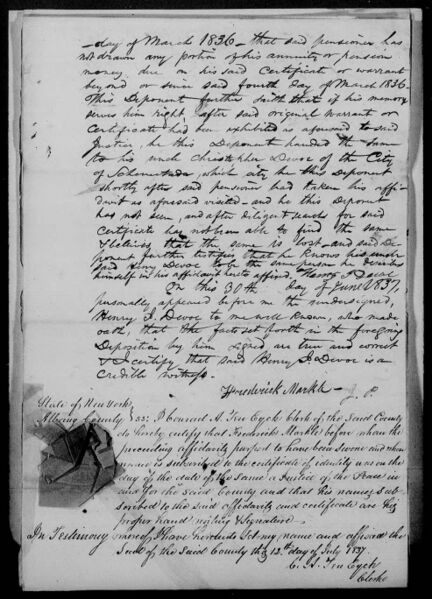 day of March 1836 - that said pensioner has
not drawn any portion of his annuity or pension
money due on his said Certificate or warrant
beyond or since said fourth day of March 1836-
This Deponent further saith that if his memory
serves him right after said original Warrant or
Certificate had been exhibited as aforesaid to said
Justice, he this Deponent handed the same
to his uncle Christopher Devoe of the City
of Schenectada, which city he this Deponent
shortly after said pensioner had taken his affi-
davit as aforesaid visited - and he this Deponent
has not seen, and after diligent search for said
Certificate has not been able to find the same
that the same is lost - and said De-
ponent further testifies that he knows his
said Henry Devoe to be the same person he describes
himself in his affidavit hereto affixed. Henry I Devoe
On this 30th day of June 1837,
personally appeared before me the undersigned,
Henry I. Devoe to me well known, who made
oath, that the facts set forth in the foregoing
Deposition by him signed are true and correct
& I certify that said Henry I. Devoe is a
credible witness.
Frederick Markle J. P.
State of New York
Albany County } ss: I Conrad A. Ten Eyck Clerk of the said County
do hereby certify that Frederick Markle before whom the
preceding affidavits purport to have been sworn and whose
name is subscribed to the certificate of identity was on the
day of the date of the same a Justice of the Peace in
and for the said County and that his names sub-
scribed to the said affidavits and certificate are his
proper hand writing & Signature.
In Testimony whereof I have hereunto set my name and affixed the
Seal of the said County this 12th day of July 1837.
C. A. Ten Eyck
Clerk